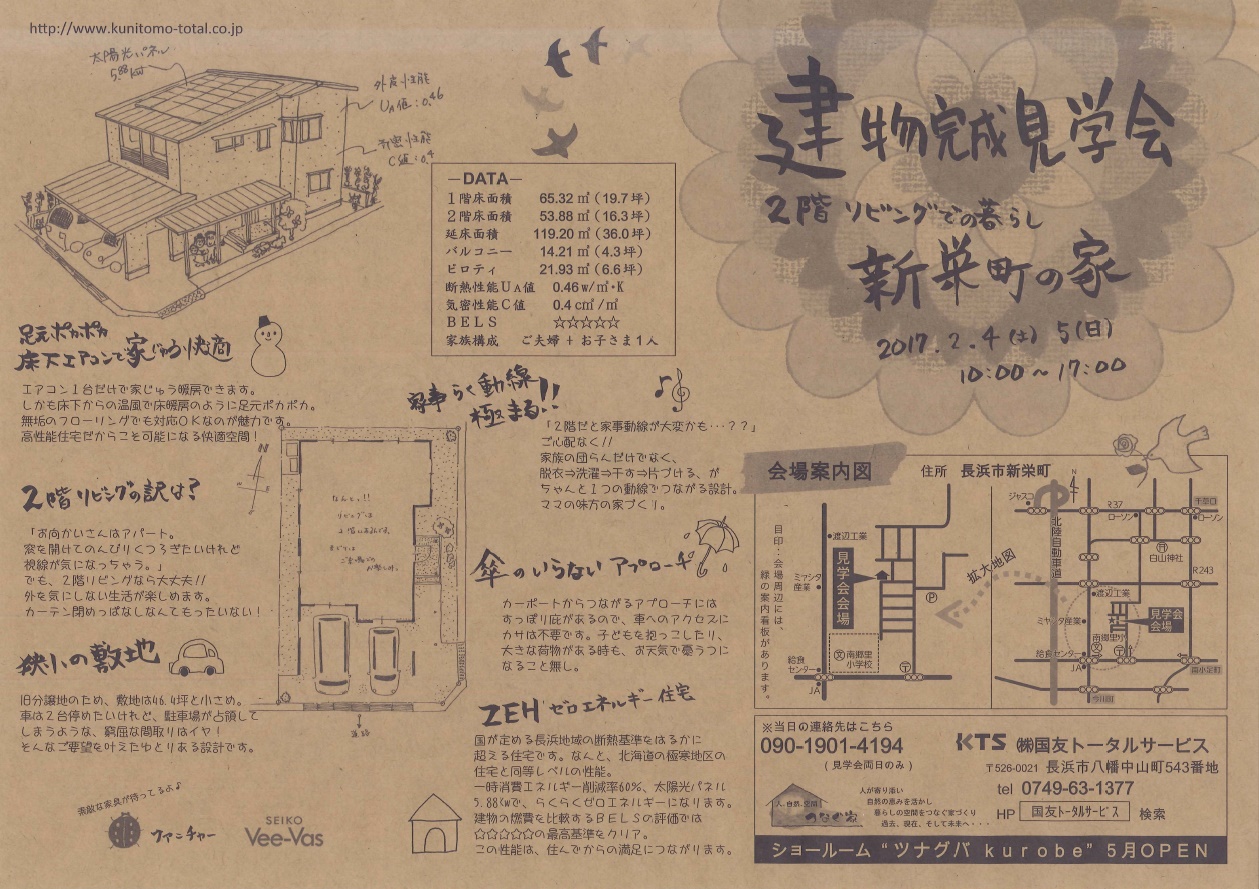 http://www.kunitomo-total.co.jp
太陽光パネル
5.88kw
外皮性能
UA値:0.46
気密性能
C値:0.4
―DATA―
1階床面積 65.32㎡(19.7坪)
2階床面積 53.88㎡(16.3坪)
延床面積 119.20㎡(36.0坪)
バルコニー 14.21㎡(4.3坪)
ピロティ 21.93㎡(6.6坪)
断熱性能UA値 0.46w/㎡・K
気密性能C値 0.4c㎡/㎡
BELS ☆☆☆☆☆
家族構成 ご夫婦+お子さま1人
建物完成見学会
2階リビングでの暮らし
新栄町の家
2017.2.4(土) 5(日)
10:00~17:00
足元ポカポカ
床下エアコンで家じゅう快適
エアコン1台だけで家じゅう暖房できます。
しかも床下からの温風で床暖房のように足元ポカポカ。
無垢のフローリングでも対応OKなのが魅力です。
高性能住宅だからこそ可能になる快適空間!
2階リビングの訳は?
「お向かいさんはアパート。
窓を開けてのんびりくつろぎたいけれど
視線が気になっちゃう。」
でも、2階リビングなら大丈夫!!
外を気にしない生活が楽しめます。
カーテン閉めっぱなしなんてもったいない!
狭小の敷地
旧分譲地のため、敷地は46.4坪と小さめ。
車は2台停めたいけれど、駐車場が占領して
しまうような、窮屈な間取りはイヤ!
そんなご要望を叶えたゆとりある設計です。
素敵な家具が待ってるよ♪
ファニチャー
SEIKO
Vee-Vas
なんと、!!
リビングは
2階にあるんです。
まどりは
ご来場での
お楽しみ。
道路
家事らく動線
極まる!!
「2階だと家事動線が大変かも…??」
ご心配なく!!
家族の団らんだけでなく、
脱衣⇒洗濯⇒干す⇒片づける、が
ちゃんと1つの動線でつながる設計。
ママの味方の家づくり。
傘のいらないアプローチ
カーポートからつながるアプローチには
すっぽり庇があるので、車へのアクセスに
カサは不要です。子どもを抱っこしたり、
大きな荷物がある時も、お天気で憂うつに
なること無し。
ZEHゼロエネルギー住宅
国が定める長浜地域の断熱基準をはるかに
超える住宅です。なんと、北海道の極寒地区の
住宅と同等レベルの性能。
一時消費エネルギー削減率60%、太陽光パネル
5.88kwで、らくらくゼロエネルギーになります。
建物の燃費を比較するBELSの評価では
☆☆☆☆☆の最高基準をクリア。
この性能は、住んでからの満足につながります。
会場案内図
住所 長浜市新栄町
目印:会場周辺には、
緑の案内看板があります。
渡辺工業
ミヤシタ
産業
見学会会場
Ⓟ
文
南郷里
小学校
〒
給食
センター
JA
拡大地図
N
ジャスコ
北陸自動車道
R37
ローソン
千草口
ローソン
白山神社
R243
渡辺工業
ミヤシタ産業
見学会
会場
南郷里小
文
〒
給食センター
JA
南小足町
今川町
※当日の連絡先はこちら
090-1901-4194
(見学会両日のみ)
KTS ㈱国友トータルサービス
〒526-0021 長浜市八幡中山町543番地
tel 0749-63-1377
HP 国友トータルサービス 検索
人、自然、空間
つなぐ家
人が寄り添い
自然の恵みを活かし
暮らしの空間をつなぐ家づくり
過去、現在、そして未来へ・・・
ショールーム“ツナグバ kurobe”5月OPEN